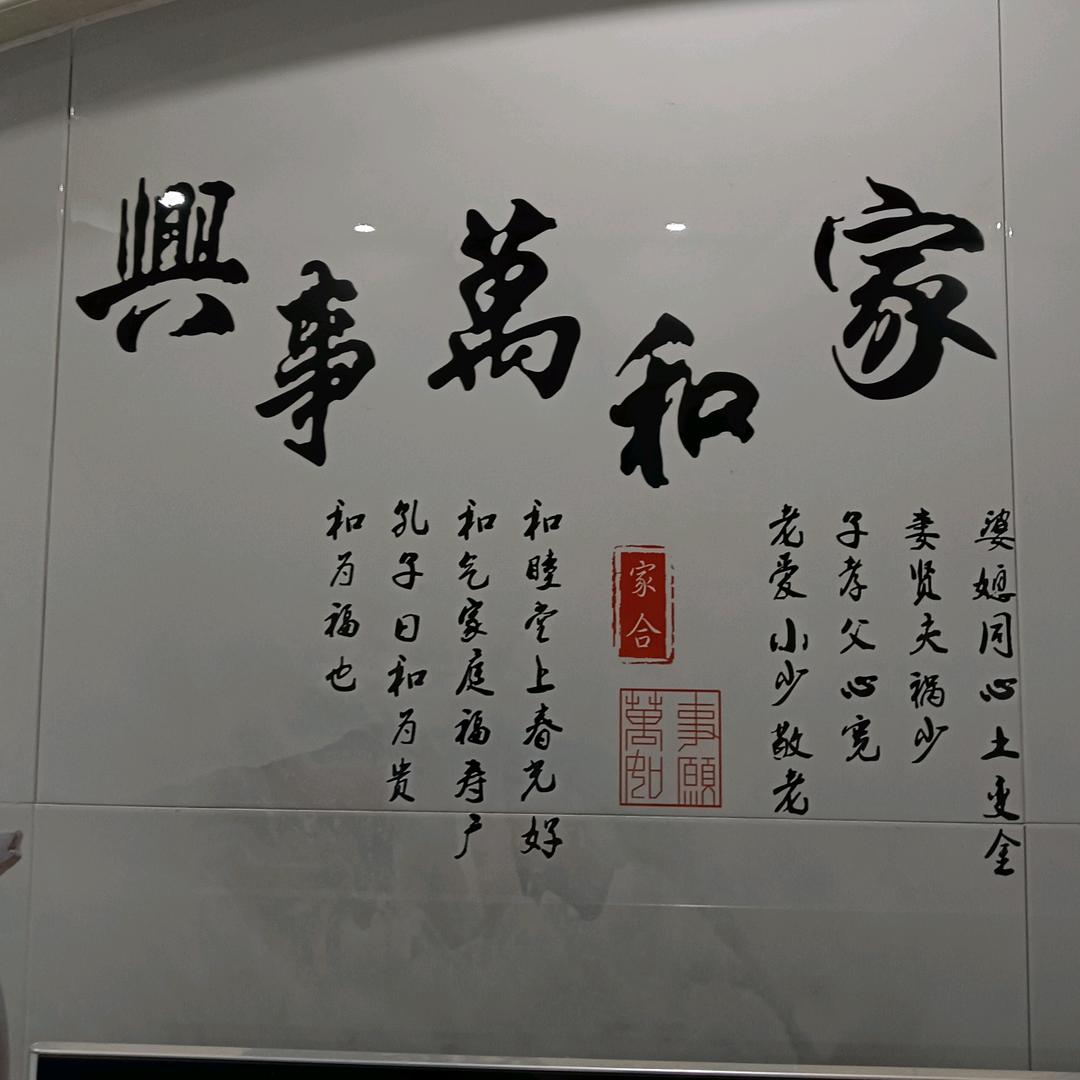 家和萬事興
婆媳同心土变金
妻贤夫祸少
子孝父心宽
老爱小少敬老
家合
事願萬如
和睦堂上春光好
和气家庭福寿广
孔子曰和为贵
和为福也